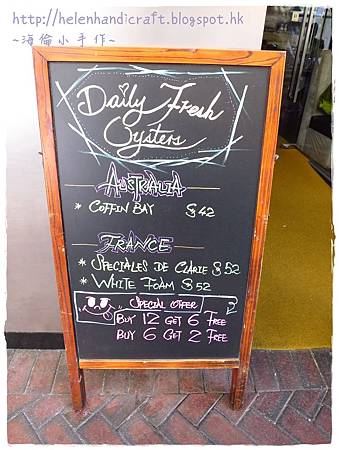 http://helenhandicraft.blogspot.hk
~海倫小手作~
Daily Fresh
Oysters
AUSTRALIA
* COFFIN BAY $42
FRANCE
* SPECIALES DE CLARIE $52
* WHITE FOAM $52
SPECIAL OFFER
BUY 12 GET 6 FREE
BUY 6 GET 2 FREE